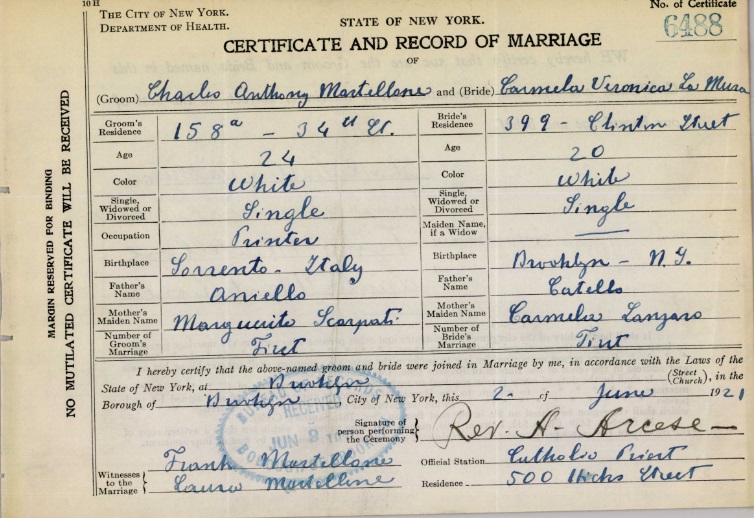 10 H
THE CITY OF NEW YORK.
DEPARTMENT OF HEALTH.
STATE OF NEW YORK.
No. of Certificate
6488
CERTIFICATE AND RECORD OF MARRIAGE
OF
(Groom) Charles Anthony Martellone and (Bride) Carmela Veronica La Mura
Groom's Residence 158a - 34th St. Bride's Residence 399 - Clinton Street
Age 24 Age 20
Color White Color White
Single, Widowed or Divorced Single Single, Widowed or Divorced Single
Occupation Printer Maiden Name, if a Widow ——
Birthplace Sorrento - Italy Birthplace Brooklyn - N.Y.
Father's Name Aniello Father's Name Catello
Mother's Maiden Name Marguerite Scarpati Mother's Maiden Name Carmela Lanzaro
Number of Groom's Marriage First Number of Bride's Marriage First
I hereby certify that the above-named groom and bride were joined in Marriage by me, in accordance with the Laws of the
State of New York, at Brooklyn (Street Church), in the
Borough of Brooklyn, City of New York, this 2- of June 1921
Signature of person performing the Ceremony Rev. A. Arcese
Witnesses to the Marriage Frank Martellone Official Station Catholic Priest
Laura Martellone Residence 500 Hicks Street
RECEIVED
JUN 9
MARGIN RESERVED FOR BINDING
NO MUTILATED CERTIFICATE WILL BE RECEIVED